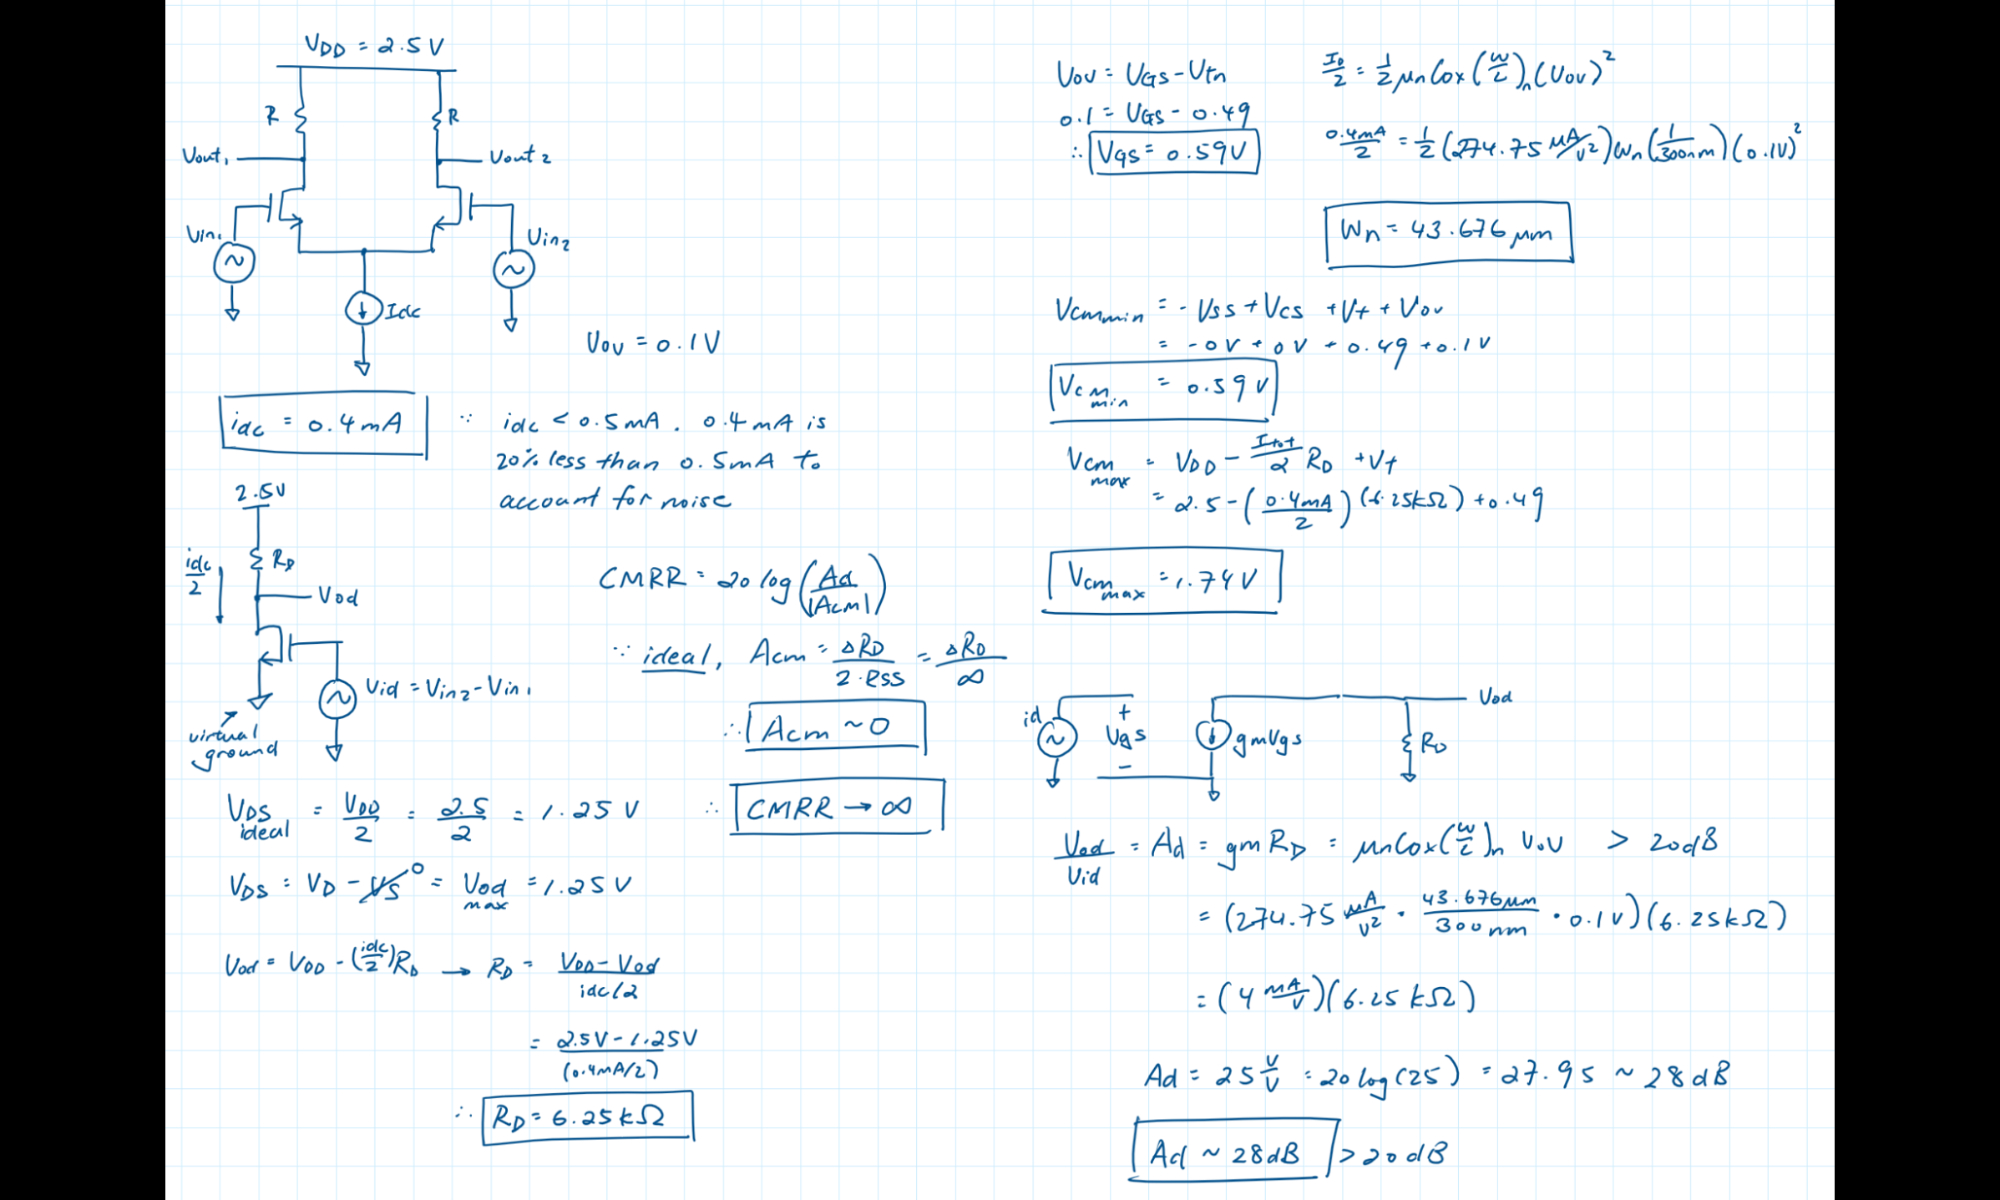 VDD = 2.5 V
R
R
Vout1
Vout2
Vin1
Vin2
Idc
Vov = 0.1 V
idc = 0.4mA
∵ idc < 0.5mA. 0.4mA is
20% less than 0.5mA to
account for noise
2.5V
idc/2
RD
Vod
Vid = Vin2 - Vin1
virtual
ground
CMRR = 20 log (Ad/|Acm|)
∵ ideal, Acm = ΔRD/(2·RSS) = ΔRD/∞
∴ Acm ~ 0
∴ CMRR → ∞
VDS ideal = VDD/2 = 2.5/2 = 1.25 V
VDS = VD - VS 0 = Vod max = 1.25 V
Vod = VDD - (idc/2)RD → RD = (VDD - Vod)/(idc/2)
= (2.5V - 1.25V)/(0.4mA/2)
∴ RD = 6.25kΩ
Vov = VGS - Vtn
0.1 = VGS - 0.49
∴ Vgs = 0.59V
I0/2 = 1/2 μnCox(W/L)n(Vov)²
0.4mA/2 = 1/2 (274.75 μA/V²)Wn(1/300nm)(0.1V)²
Wn = 43.676 μm
Vcmmin = -VSS + VCS + Vt + Vov
= -0V + 0V + 0.49 + 0.1V
Vcm min = 0.59 V
Vcm max = VDD - Itot/2 RD + Vt
= 2.5 - (0.4mA/2)(6.25kΩ) + 0.49
Vcm max = 1.74V
id
+
Vgs
-
gmVgs
Vod
RD
Vod/Vid = Ad = gmRD = μnCox(W/L)n Vov > 20dB
= (274.75 μA/V² · 43.676μm/300nm · 0.1V)(6.25kΩ)
= (4 mA/V)(6.25 kΩ)
Ad = 25 V/V = 20log(25) = 27.95 ~ 28dB
Ad ~ 28dB > 20dB